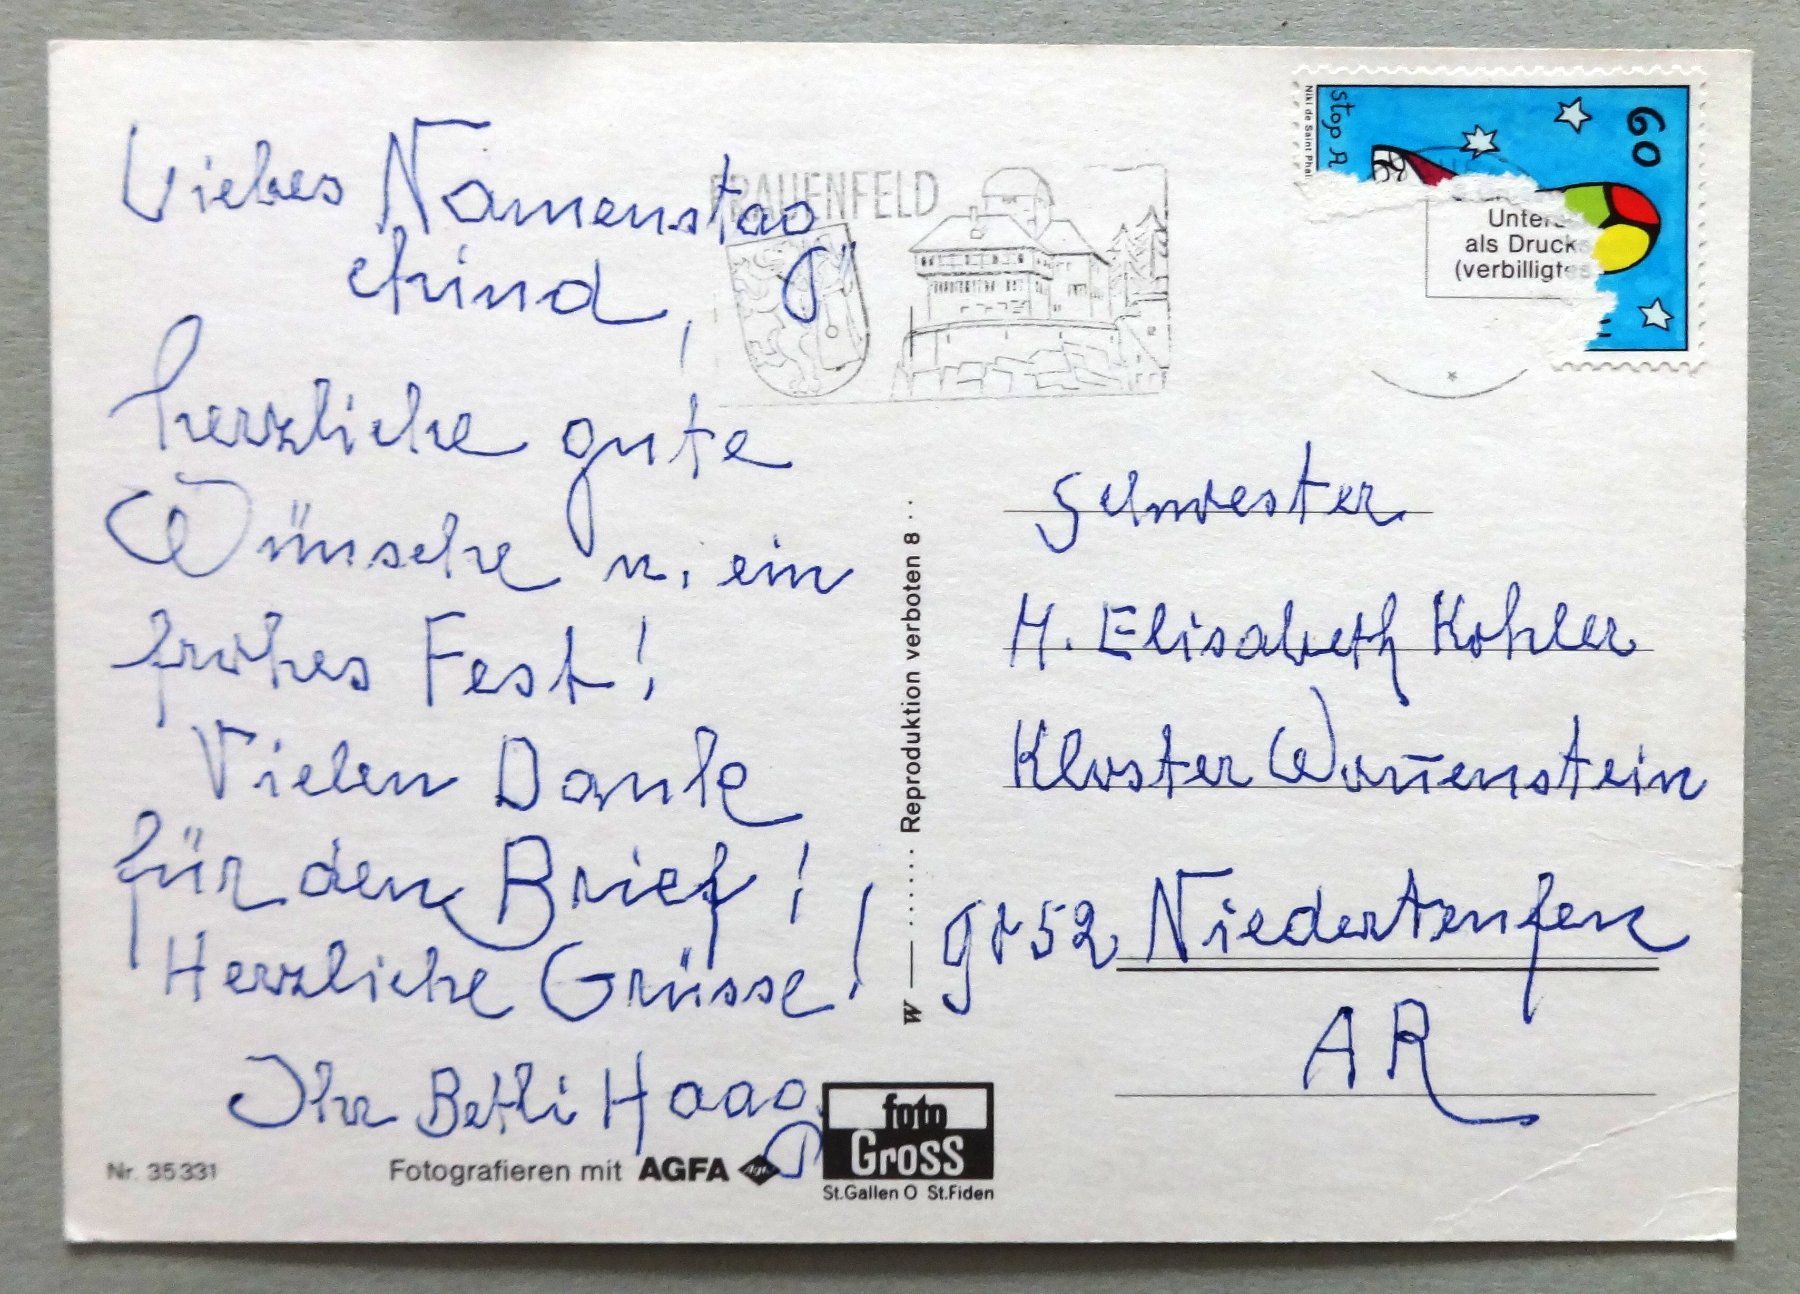 Liebes Namenstag
kind,
herzliche gute
Wünsche u. ein
frohes Fest!
Vielen Dank
für den Brief!
Herzliche Grüsse!
Ihr Betli Haag
Nr. 35331
Fotografieren mit AGFA
foto
Gross
St.Gallen O St.Fiden
W Reproduktion verboten 8
FRAUENFELD
Niki de Saint Phal
Stop A
60
als Druck
(verbilligte
Schwester
M. Elisabeth Kohler
Kloster Wonnenstein
9052 Niederteufen
AR